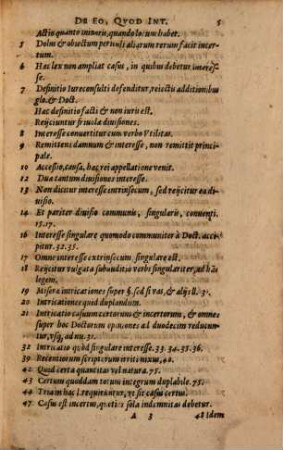 DE EO, QVOD INT. 5
Actio quanto minoris, quando locum habet.
5 Dolus & obiectum periculi aliarum rerum facit incertum.
6 Hæc lex non ampliat casus, in quibus debetur interesse.
7 Definitio Iureconsulti defenditur, reiectis additionibus glo. & Doct.
Hæc definitio facti & non iuris est.
Reijciuntur friuolæ diuisiones.
8 Interesse conuertitur cum verbo Vtilitas.
9 Remittens damnum & interesse, non remittit principale.
10 Accessio, causa, hæc rei appellatione venit.
12 Dua tantum diuisiones interesse.
13 Non dicitur interesse intrinsecum, sed reijcitur ea diuisio.
14 Et pariter diuisio communis, singularis, conuenti. 15.17.
16 Interesse singulare quomodo communiter à Doct. accipitur. 32.35.
17 Omne interesse extrinsecum, singulare est.
18 Reijcitur vulgata subauditio verbi singulariter, ad hāc legem.
19 Misera intricationes super §. sed si
20 Intricationes quid duplendum.
21 Intricatio casuum certorum & incertorum, & omnes super hoc Doctorum opiniones ad duodecim reducuntur, vsq; ad nu. 31.
32 Intricatio quòd singulare interesse. 33.34.35.36.
39 Recentiorum scriptorum
42 Quid certa quantitas vel natura. 75.
43 Certum quoddam totum integrum duplabile. 75.
44 Triam hæc l. requiruntur, vt sit casus certus.
47 Casus est incertus, quoties sola indemnitas debetur.
A 3 48 Idem